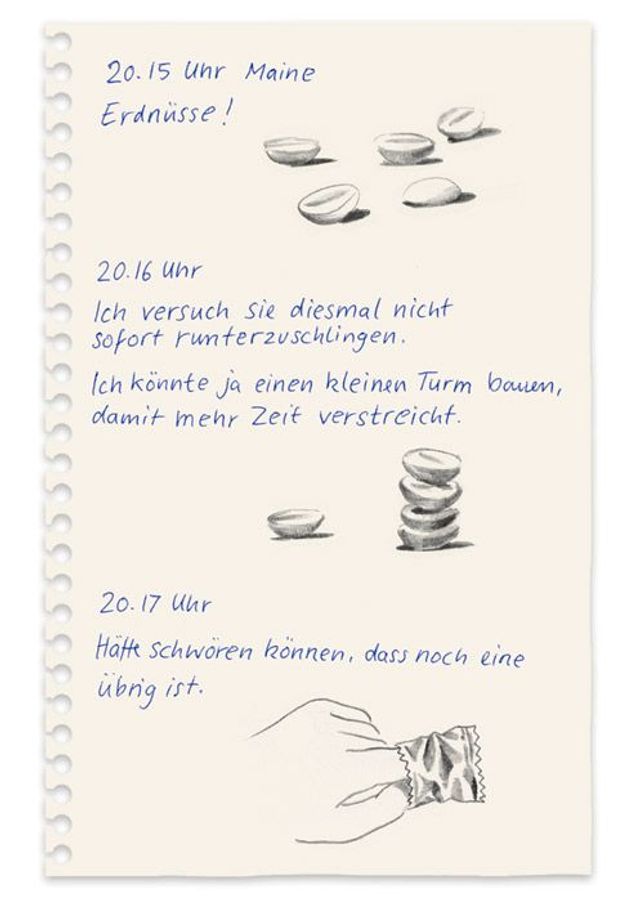 20.15 Uhr Maine
Erdnüsse!
20.16 Uhr
Ich versuch sie diesmal nicht
sofort runterzuschlingen.
Ich könnte ja einen kleinen Turm bauen,
damit mehr Zeit verstreicht.
20.17 Uhr
Hätte schwören können, dass noch eine
übrig ist.